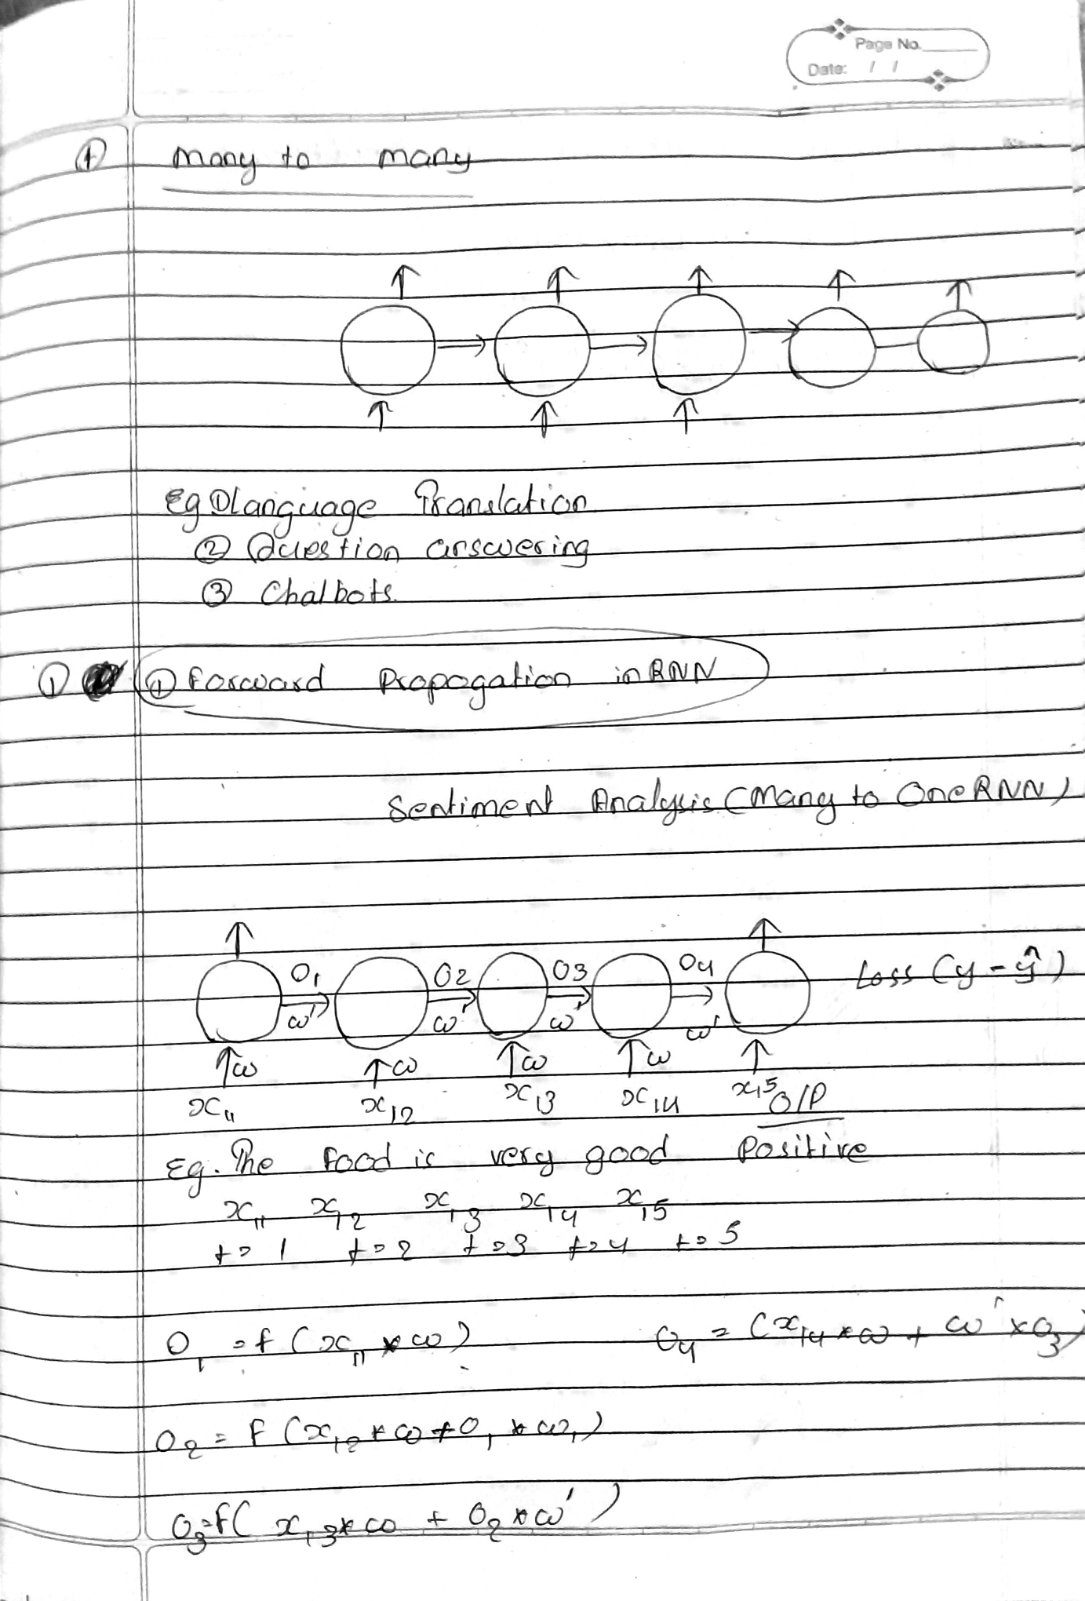 Page No.
Date: / /
④ Many to many
Eg ① Language Translation
② Question answering
③ Chatbots.
① ① Forward Propagation in RNN
Sentiment Analysis (Many to One RNN)
O₁ O₂ O₃ O₄ Loss (y - ŷ)
ω' ω' ω' ω'
ω ω ω ω
x₁₁ x₁₂ x₁₃ x₁₄ x₁₅ O/P
Eg. The food is very good Positive
x₁₁ x₁₂ x₁₃ x₁₄ x₁₅
t=1 t=2 t=3 t=4 t=5
O₁ = f (x₁₁ * ω) O₄ = (x₁₄ * ω + ω' × O₃)
O₂ = f (x₁₂ * ω + O₁ * ω₁)
O₃ = f( x₁₃ * ω + O₂ * ω')